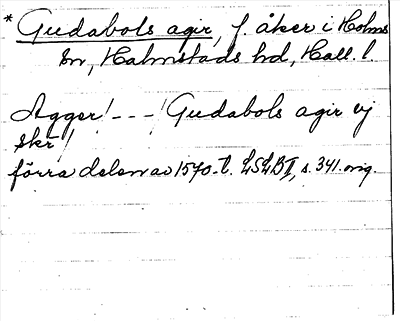 * Gudabols agir, f. åker i Holms
sn, Halmstads hd, Hall. l.
Agger! - - -! Gudabols agir ij
skr!
förra delen av 1570-t. LSLB II, s. 341. orig.